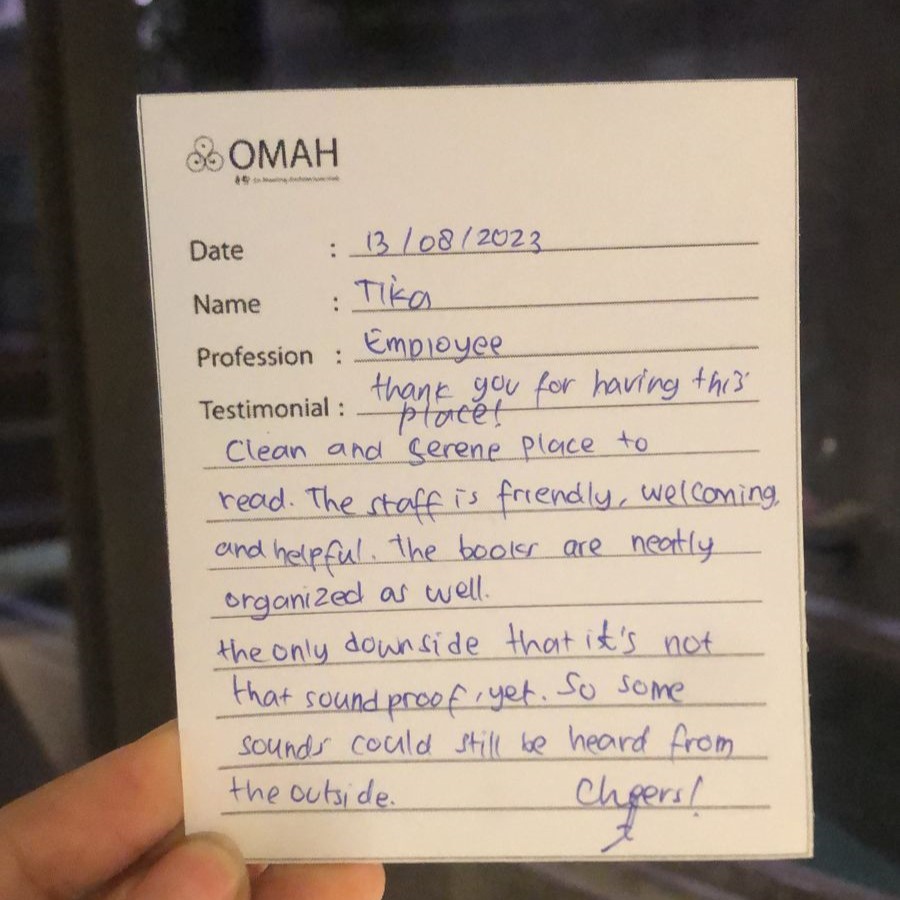 OMAH
Date : 13/08/2023
Name : Tika
Profession : Employee
Testimonial : thank you for having this
place!
Clean and serene place to
read. The staff is friendly, welcoming,
and helpful. The books are neatly
organized as well.
the only downside that it's not
that soundproof, yet. So some
sounds could still be heard from
the outside. Cheers!